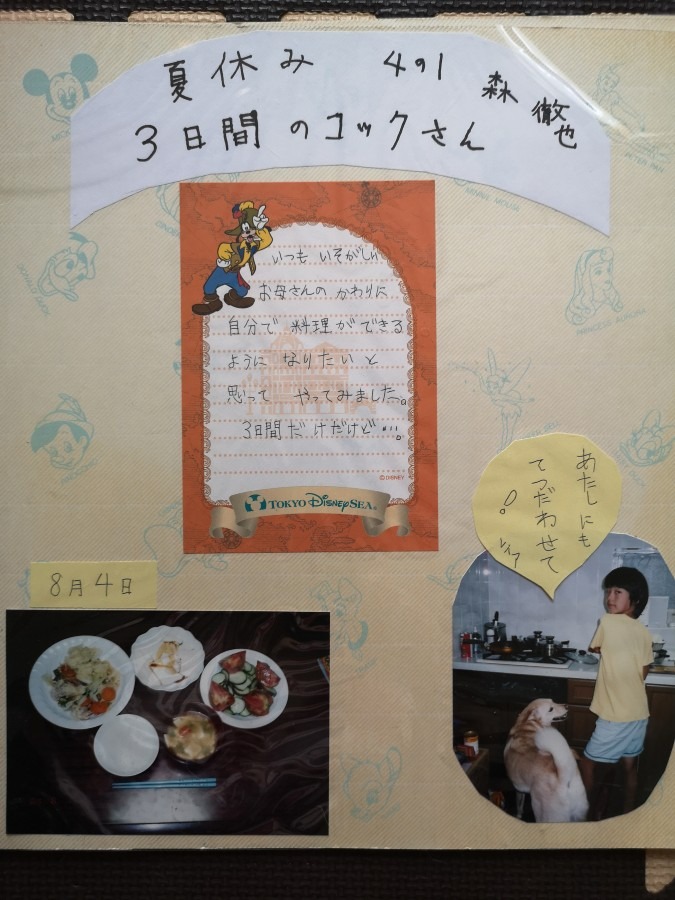 夏休み 4の1 森 徹也
3日間のコックさん
いつも いそがしい
お母さんの かわりに
自分で 料理ができる
ように なりたいと
思って やってみました。
3日間だけだけど…。
©DISNEY
TOKYO DISNEYSEA®
あたしにも
てつだわせて
!
レイア
8月4日